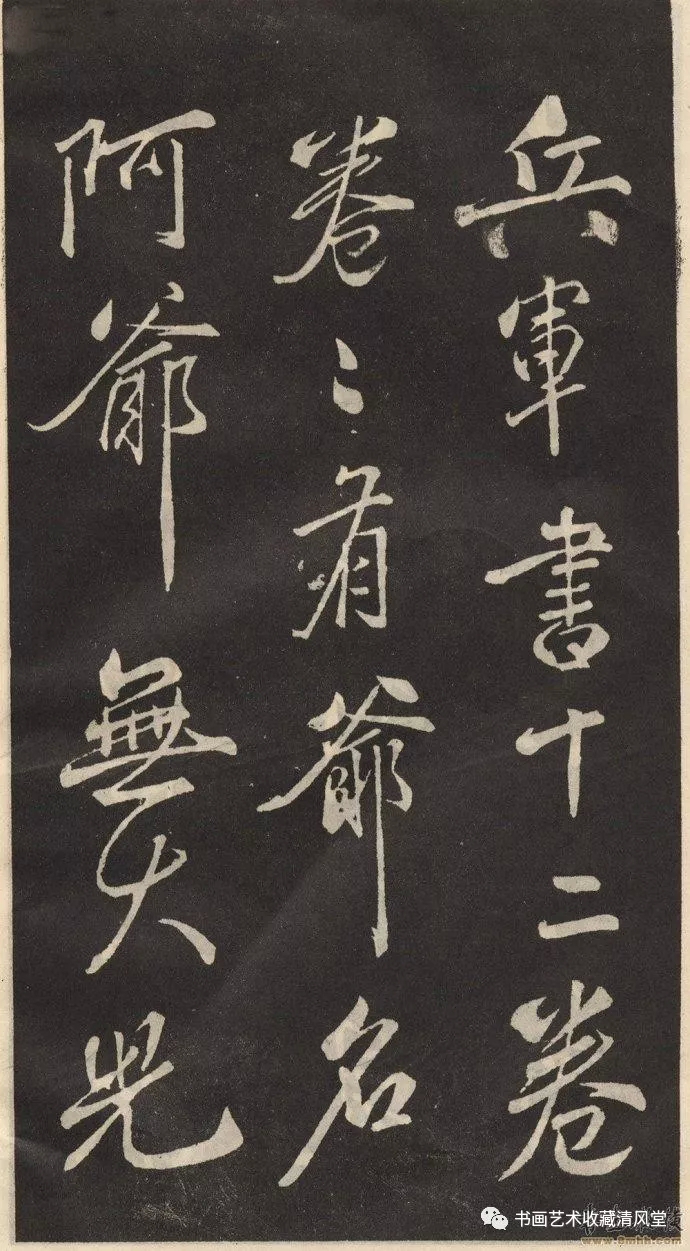 兵軍書十二卷
卷〻有爺名
阿爺無大兒
书画艺术收藏清风堂